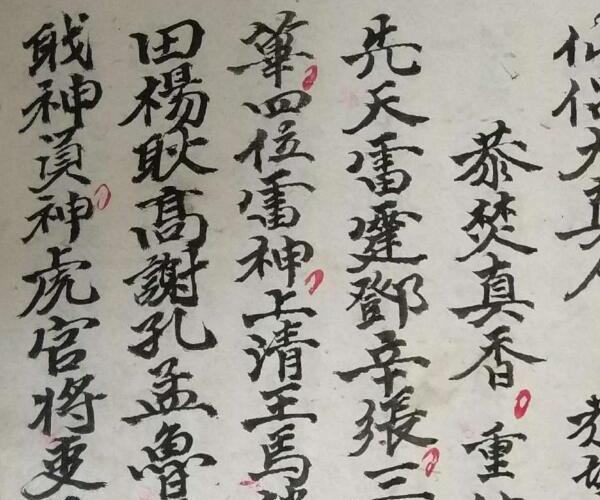 仙侣大真人
恭焚真香重
先天雷霆鄧辛張三
筆四位雷神上清王馬
田楊耿高謝孔孟魯
戝神負神虎官将吏